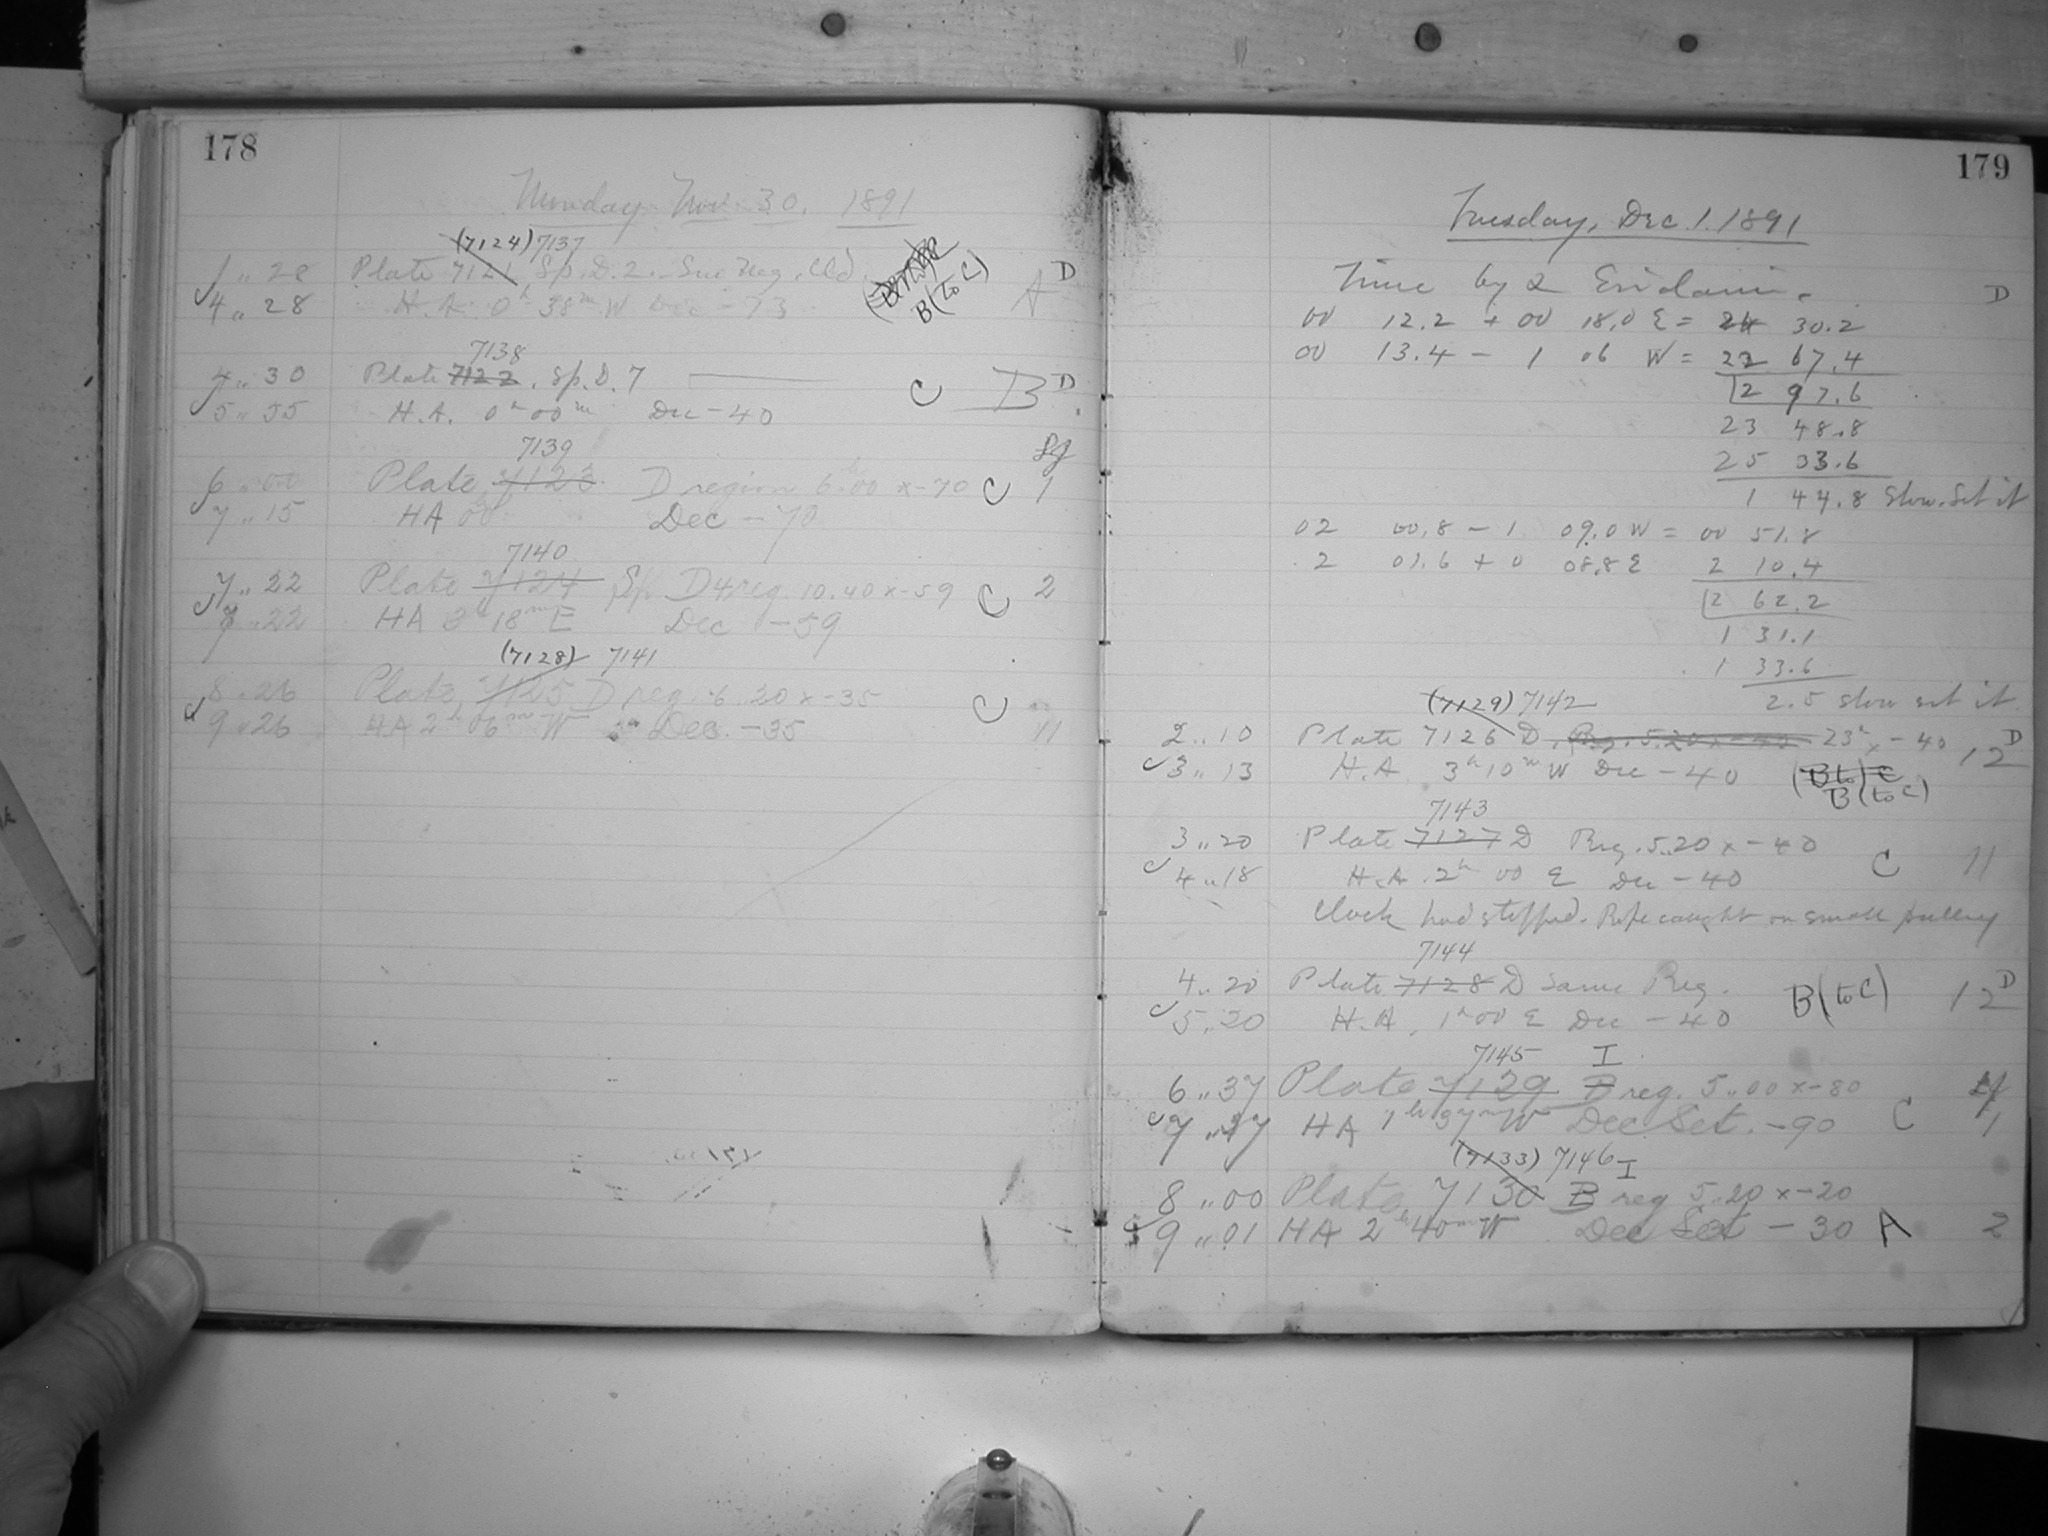 178
Monday Nov. 30, 1891
(7124) 7137
1 .. 28 Plate 7121, Sp. D. 2. Sm. Mag. Cld. D
4 .. 28 H.A. 0h 38m W Dec -73 B (to C) A
7138
4 .. 30 Plate 7122, Sp. D. 7 C B D
5 .. 55 H.A. 0h 00m Dec -40
7139
6 .. 00 Plate 7123 D region 6h.00 x -70 C 1
7 .. 15 HA 00 Dec -70
7140
7 .. 22 Plate 7124 Sp. D 4 reg. 10.40 x -59 C 2
8 .. 22 HA 3h 18m E Dec -59
(7128) 7141
8 .. 26 Plate, 7125 D reg. 6..20 x -35 C
9 .. 26 HA 2h 06m W Dec. -35 11
179
Tuesday, Dec. 1. 1891
Time by 2 Eridani. D
00 12.2 + 00 18.0 E = 24 30.2
00 13.4 - 1 06 W = 22 67.4
2 97.6
23 48.8
25 33.6
1 44.8 Slow. Set it
02 00.8 - 1 09.0 W = 00 51.8
2 01.6 + 0 08.8 E 2 10.4
2 62.2
1 31.1
1 33.6
2.5 slow set it
(7129) 7142
2 .. 10 Plate 7126 D. Reg. 5.20 x -40 23h x -40 12 D
3 .. 13 H.A. 3h 10m W Dec -40 (B to) C
B (to C)
7143
3 .. 20 Plate 7127 D Reg. 5..20 x -40
4 .. 18 H.A. 2h 00 E Dec -40 C 11
Clock had stopped. Rope caught on small pulley
7144
4 .. 20 Plate 7128 D Same Reg. B (to C) 12 D
5 .. 20 H.A. 1h 00 E Dec -40
7145 I
6 .. 37 Plate 7129 B reg. 5..00 x -80
7 .. 37 HA 1h 37m W Dec Set. -90 C 1
(7133) 7146 I
8 .. 00 Plate, 7130 B reg 5..20 x -20
9 .. 01 HA 2h 40m W Dec Set -30 A 2